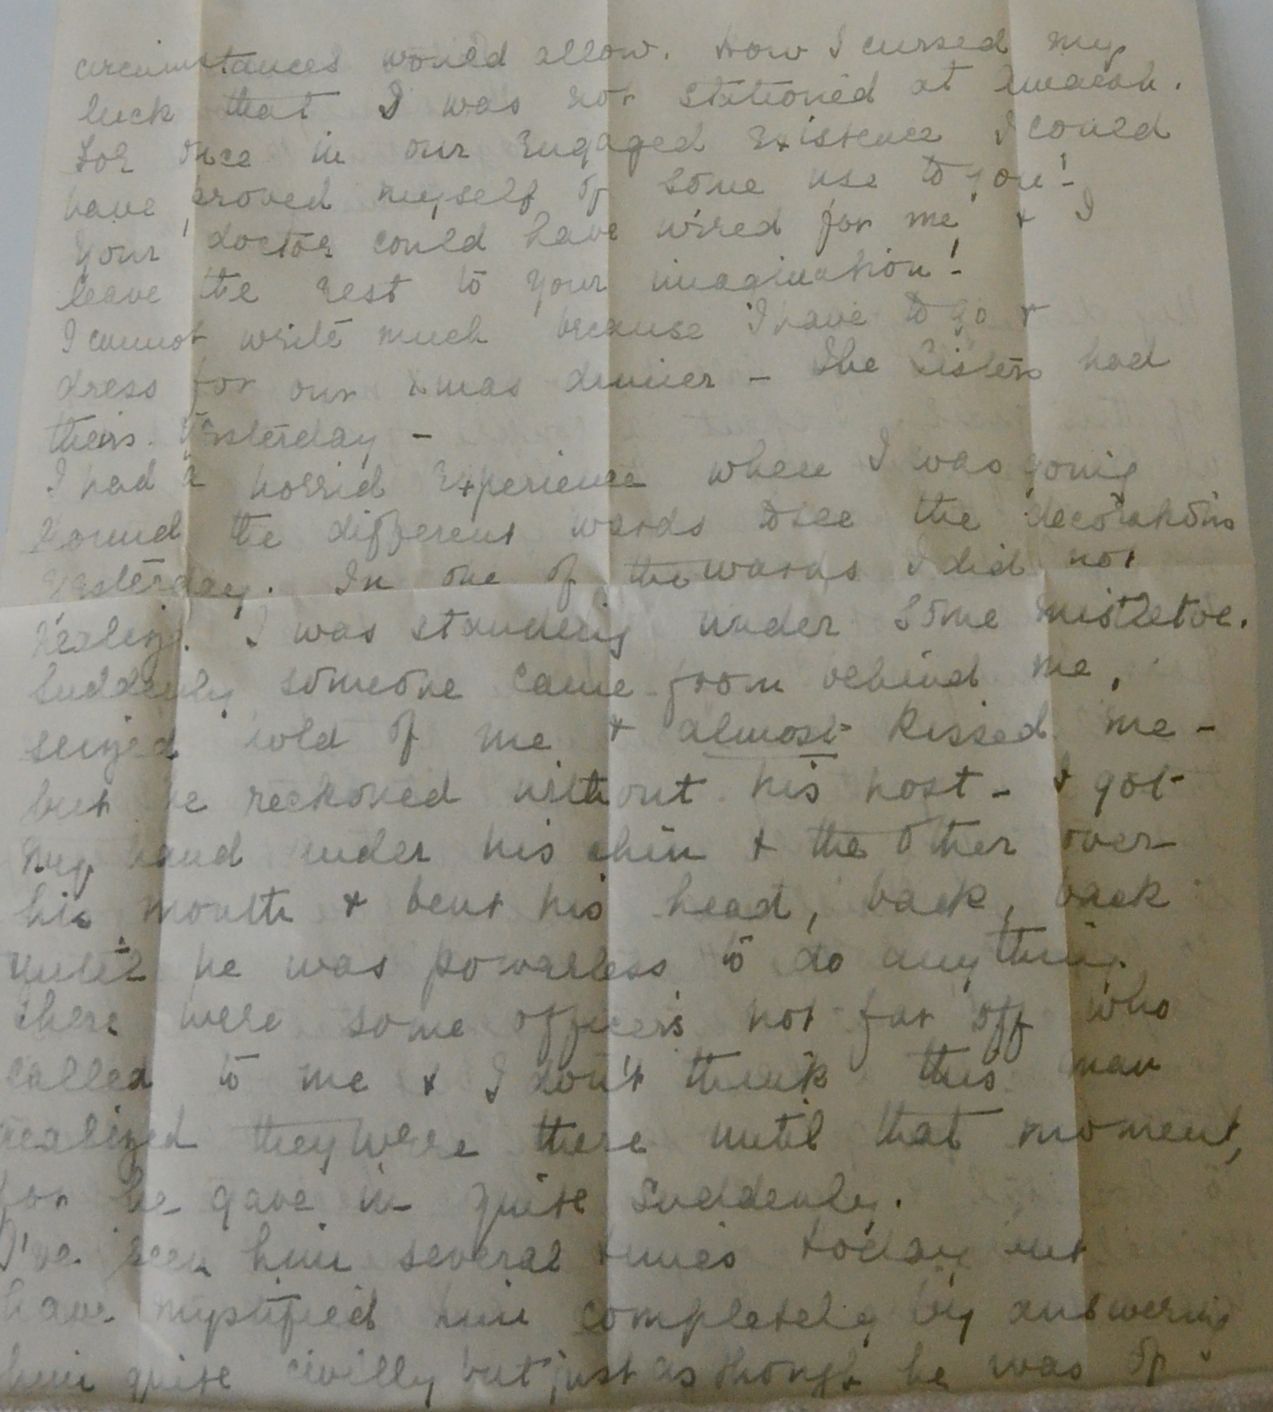 circumstances would allow. How I cursed my
luck that I was not stationed at Amarah.
For once in our engaged existence I could
have proved myself of some use to you! -
Your doctor could have wired for me & I
leave the rest to your imagination! -
I cannot write much because I have to go &
dress for our Xmas dinner - The Sisters had
theirs yesterday -
I had a horrid experience when I was going
round the different wards to see the decorations
yesterday. In one of the wards I did not
realize I was standing under some mistletoe.
Suddenly someone came from behind me,
seized hold of me & almost kissed me -
but he reckoned without his host - I got
my hand under his chin & the other over
his mouth & bent his head, back, back
until he was powerless to do anything.
There were some officers not far off who
called to me & I don't think this man
realized they were there until that moment,
for he gave in quite suddenly.
I've seen him several times today but
have mystified him completely by answering
him quite civilly but just as though he was of